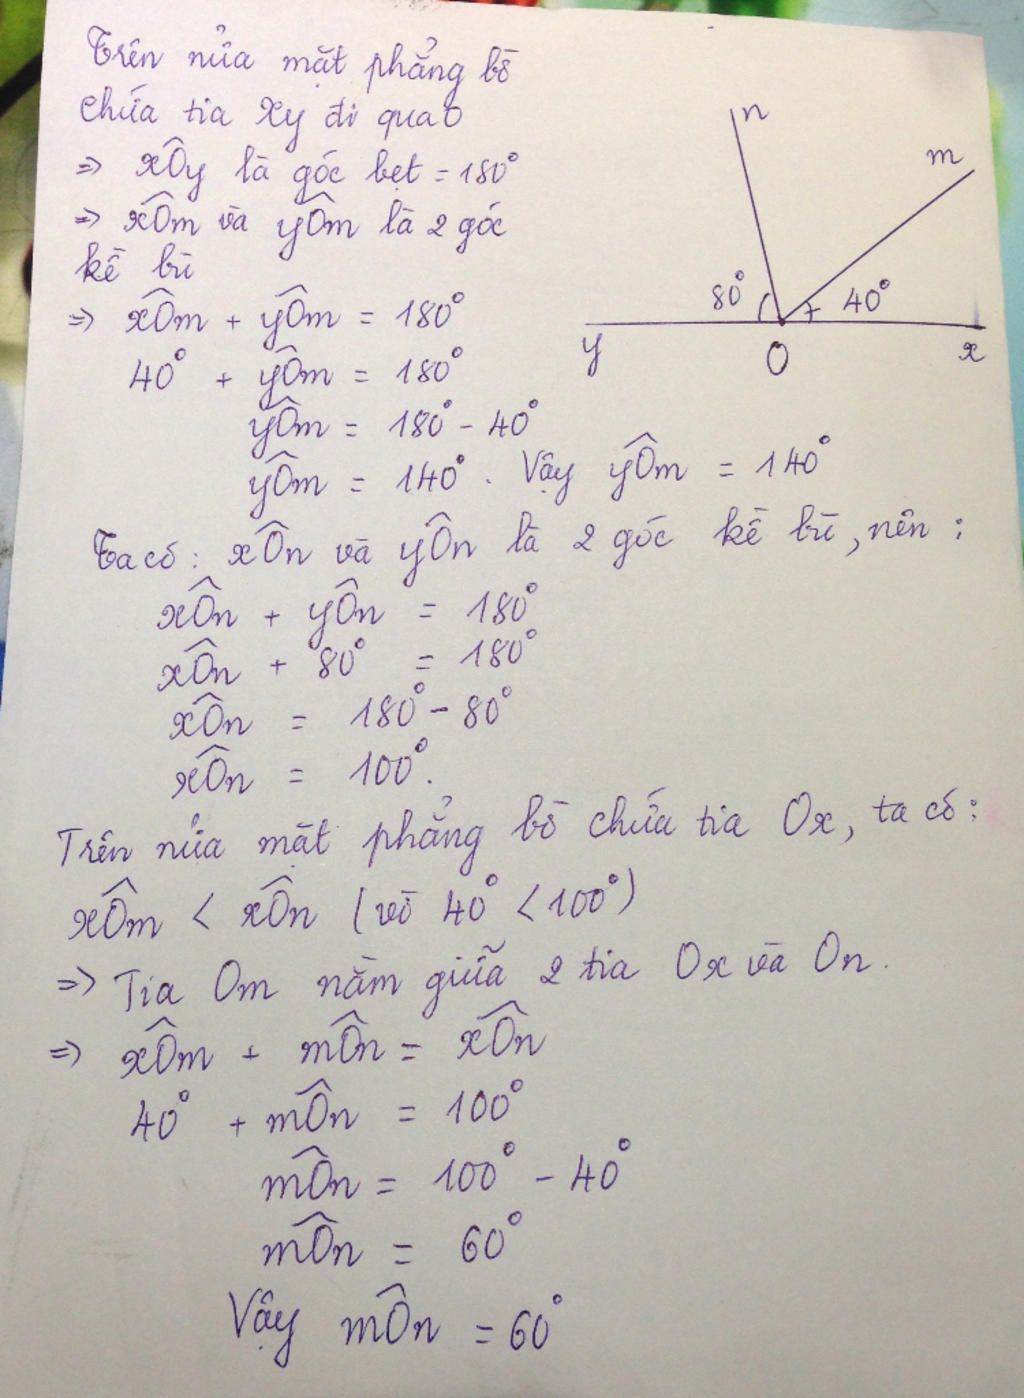 Trên nửa mặt phẳng bờ
chứa tia xy đi qua O
=> xÔy là góc bẹt = 180°
=> xÔm và yÔm là 2 góc
kề bù
=> xÔm + yÔm = 180°
40° + yÔm = 180°
yÔm = 180° - 40°
yÔm = 140°. Vậy yÔm = 140°
Ta có: xÔn và yÔn là 2 góc kề bù, nên:
xÔn + yÔn = 180°
xÔn + 80° = 180°
xÔn = 180° - 80°
xÔn = 100°.
Trên nửa mặt phẳng bờ chứa tia Ox, ta có:
xÔm < xÔn (vì 40° < 100°)
=> Tia Om nằm giữa 2 tia Ox và On.
=> xÔm + mÔn = xÔn
40° + mÔn = 100°
mÔn = 100° - 40°
mÔn = 60°
Vậy mÔn = 60°
n
m
80° 40°
y O x